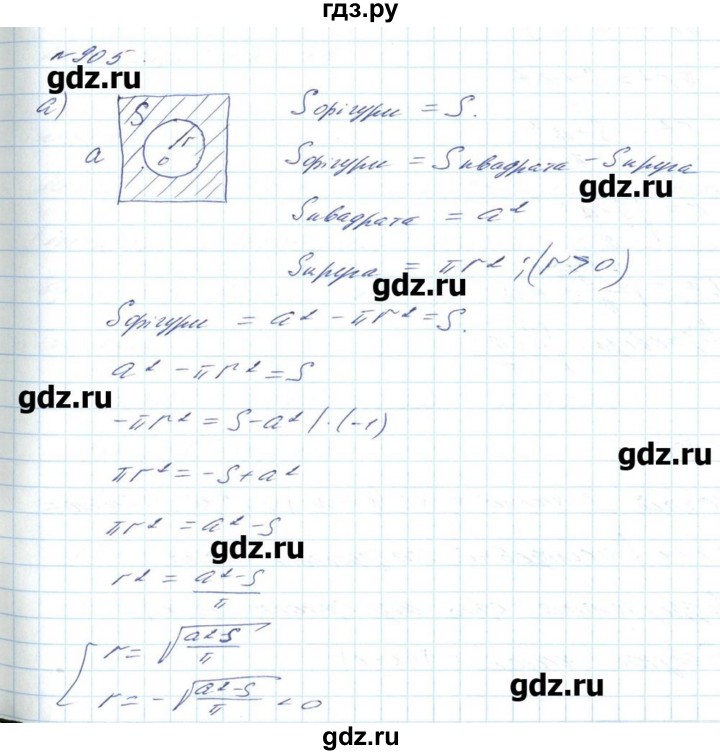 гдз.ру
№905.
gdz.ru
а)
S
r
o
a
Sфігури = S.
Sфігури = Sквадрата - Sкруга
gdz.ru
Sквадрата = a²
Sкруга = πr² ; (r > 0)
gdz.ru
Sфігури = a² - πr² = S.
a² - πr² = S
gdz.ru
-πr² = S - a² | · (-1)
gdz.ru
πr² = -S + a²
πr² = a² - S
gdz.ru
r² = \frac{a² - S}{π}
[ r = √\frac{a² - S}{π}
r = -√\frac{a² - S}{π} < 0
gdz.ru
gdz.ru